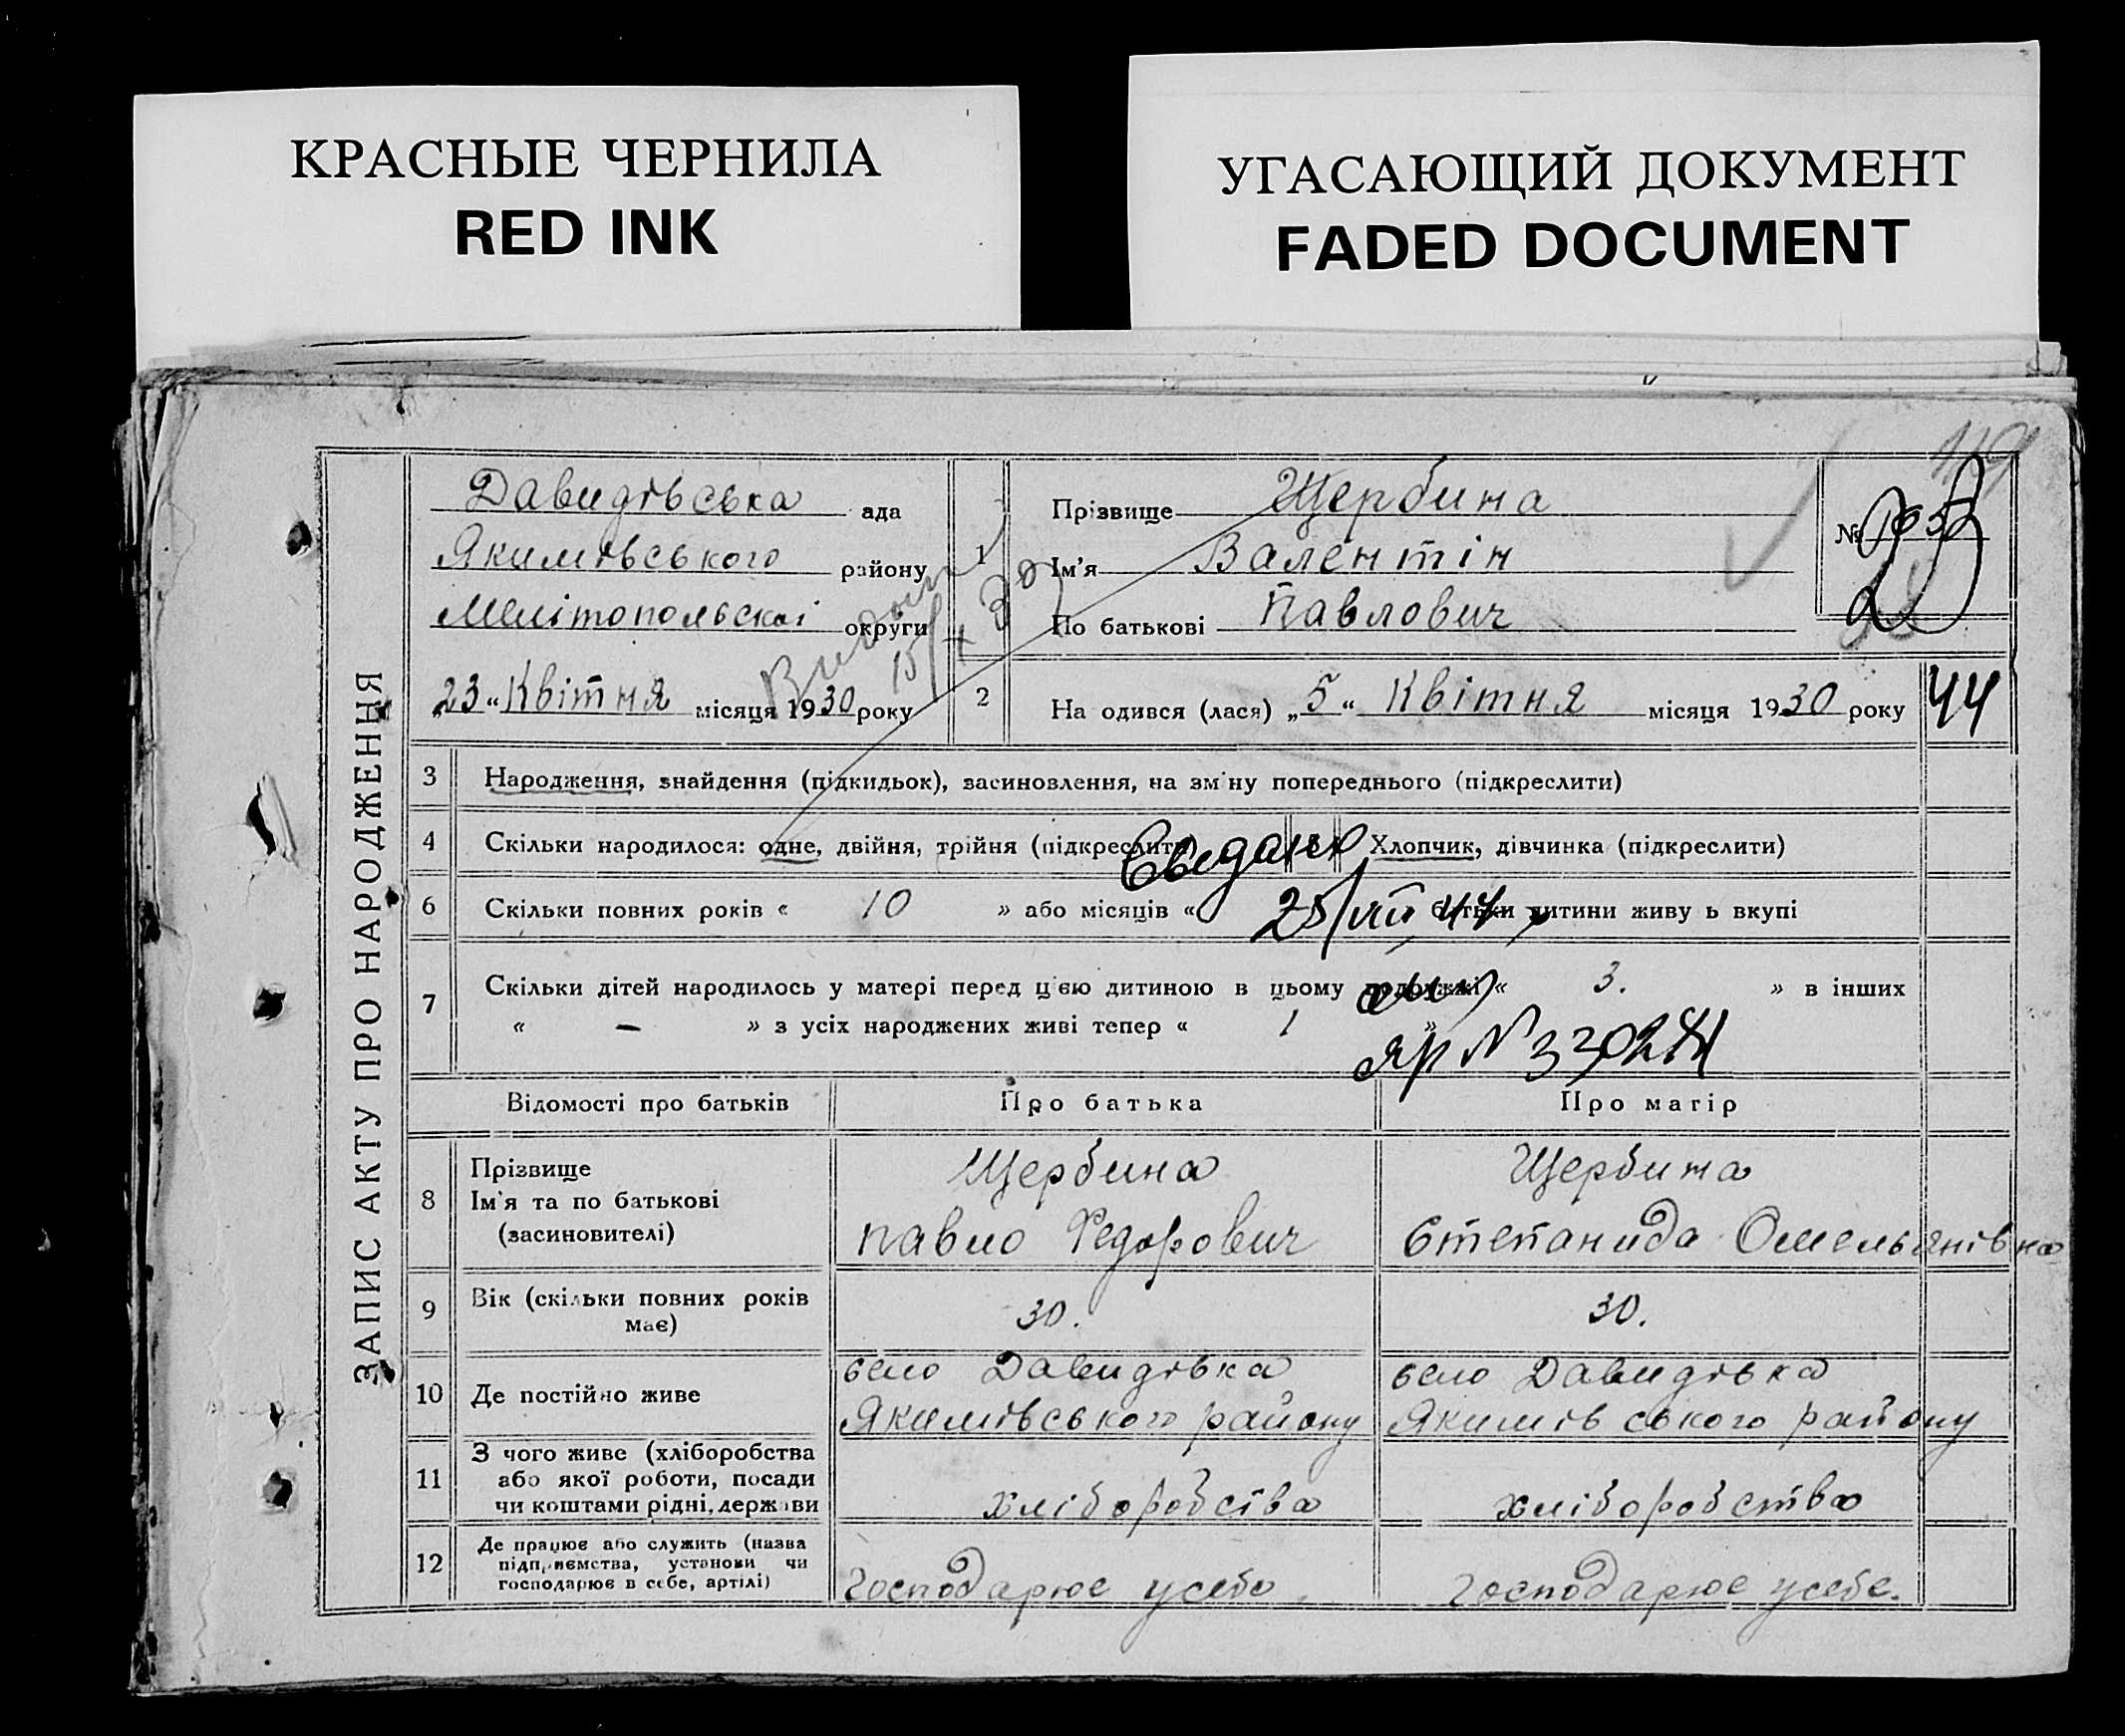 КРАСНЫЕ ЧЕРНИЛА
RED INK
УГАСАЮЩИЙ ДОКУМЕНТ
FADED DOCUMENT
ЗАПИС АКТУ ПРО НАРОДЖЕННЯ
Давидівська ада
Якимівського району
Мелітопольскої округи
„23“ Квітня місяця 1930 року
1
Прізвище Щербина
Ім'я Валентін
По батькові Павлович
№
23
2
На одився (лася) „5“ Квітня місяця 1930 року
44
3 Народження, знайдення (підкидьок), засиновлення, на зм ну попереднього (підкреслити)
4 Скільки народилося: одне, двійня, трійня (підкреслити) Хлопчик, дівчинка (підкреслити)
6 Скільки повних років « 10 » або місяців « батьки дитини живу ь вкупі
25/VII 44
7 Скільки дітей народилось у матері перед цією дитиною в цьому подружжі « 3. » в інших
« — » з усіх народжених живі тепер « 1 »
Відомості про батьків Про батька Про матір
8 Прізвище
Ім'я та по батькові
(засиновителі)
Щербина
Павло Федорович
Щербина
Степанида Омельянівна
9 Вік (скільки повних років
має)
30.
30.
10 Де постійно живе
село Давидівка
Якимівського району
село Давидівка
Якимівського району
11 З чого живе (хліборобства
або якої роботи, посади
чи коштами рідні, держави
хліборобства
хліборобства
12 Де працює або служить (назва
підприємства, установи чи
господарює в себе, артілі)
господарює усебе
господарює усебе.